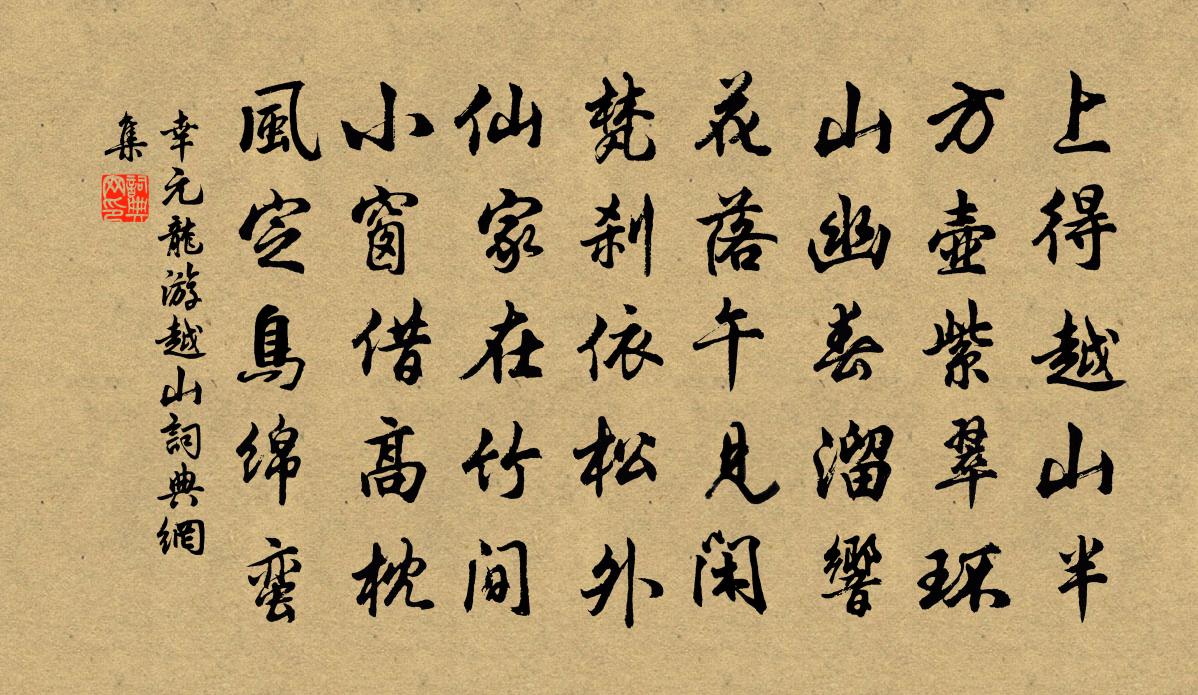 上得越山半
方壺紫翠环
山幽春溜響
花落午見閑
梵刹依松外
仙家在竹間
小窗借高枕
風定鳥綿蛮
幸元龍游越山詞典網
集
詞典
网印